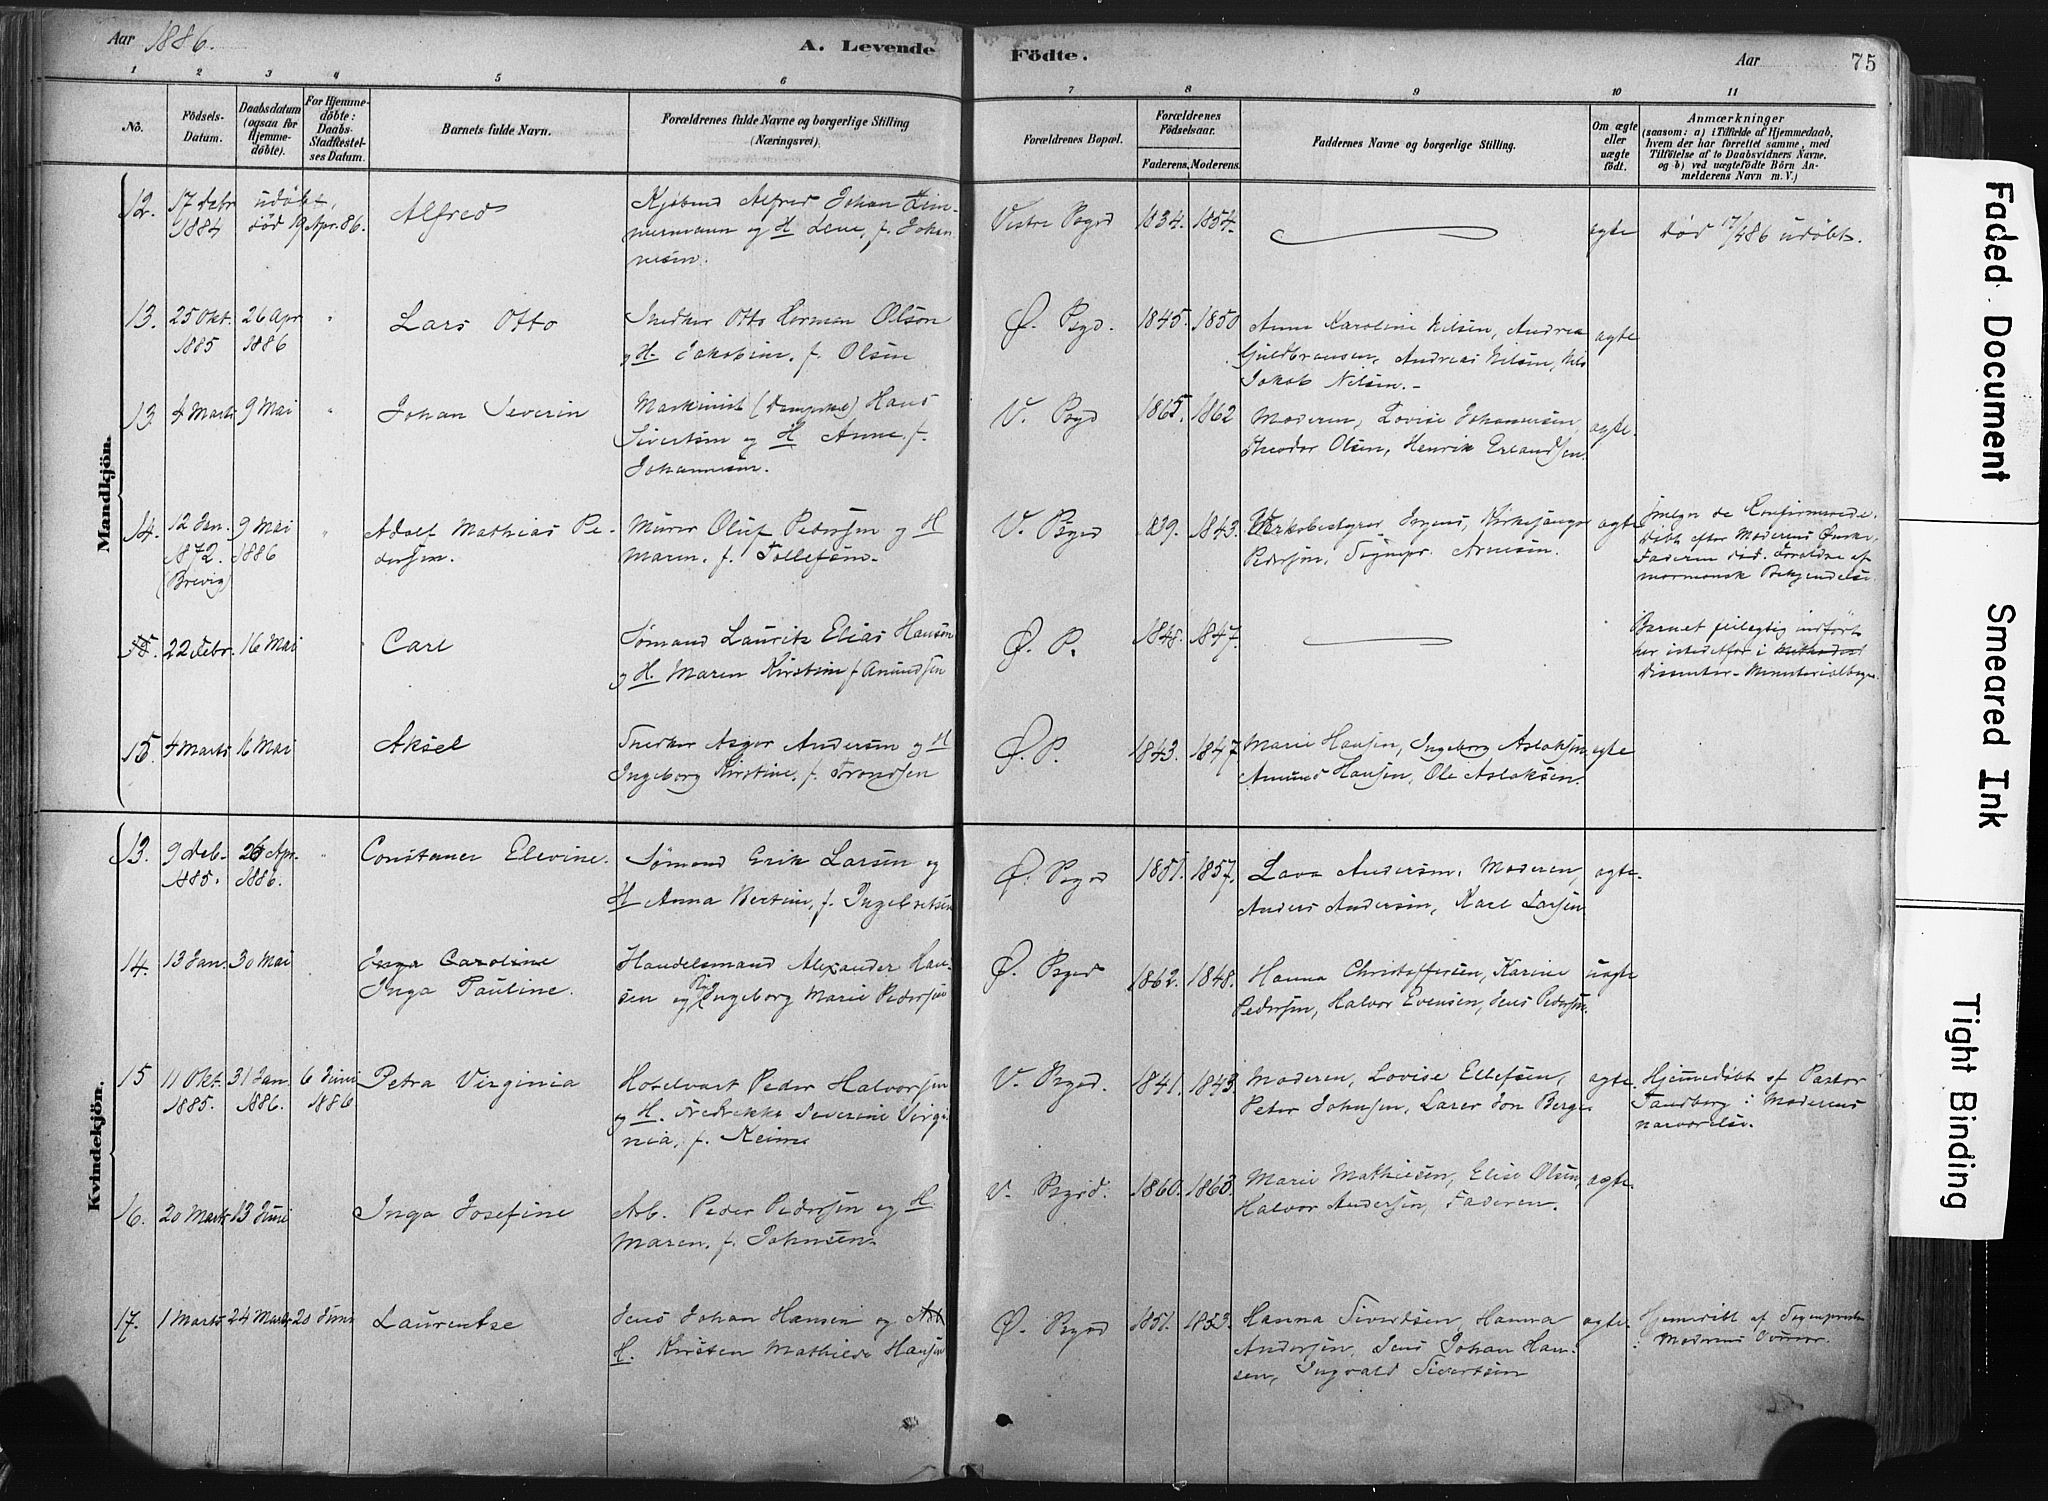 Aar 1886.
A. Levende
Födte.
Aar
75
1 2 3 4 5 6 7 8 9 10 11
No.
Födsels-
Datum.
Daabsdatum
(ogsaa for
Hjemme-
döbte).
For Hjemme-
döbte:
Daabs-
Stadfæstel-
ses Datum.
Barnets fulde Navn.
Forældrenes fulde Navne og borgerlige Stilling
(Næringsvei).
Forældrenes Bopæl.
Forældrenes
Födselsaar.
Faderens. Moderens.
Faddernes Navne og borgerlige Stilling.
Om ægte
eller
uægte
födt.
Anmærkninger
(saasom: a) i Tilfælde af Hjemmedaab,
hvem der har forrettet samme, med
Tilföielse af to Daabsvidners Navne.
og b) ved uægtefödte Börn An-
melderens Navn m. V.)
Mandkjön.
12. 17 Debr 1884
udøbt,
død 19 Apr. 86.
Alfred
Kjøbmd Alfred Johan Zim-
mermann og H Lene, f. Johan-
nesen.
Vestre Psgrd 1834. 1854.
ægte
død 17/4 86 udøbt.
13. 25 Okt. 1885
26 Apr 1886
"
Lars Otto
Snedker Otto Herman Olsen
og H. Jakobine, f. Olsen
Ø. Psgd. 1845. 1850
Anne Karoline Nilsen, Andrea
Guldbransen, Andreas Nilsen, Nils
Jakob Nilsen.-
ægte
13. 4 Marts 9 Mai "
Johan Severin
Maskinist (Dampskib) Hans
Sivertsen og H Anne, f.
Johannesen.
V. Psgd 1865. 1862
Moderen, Lovise Johannesen,
Theodor Olsen, Henrik Erlandsen.
ægte.
14. 12 Jan. 1872. (Brevig)
9 Mai 1886
"
Adolf Mathias Pe-
dersen.
Murer Oluf Pedersen og H
Maren, f. Tollefsen.
V. Psgd 1829. 1843.
Værksbestyrer Irgens, Kirkesanger
Pedersen, Sognepr. Arnesen.
ægte
Imellem de Konfirmerede.
Døbt efter Moderens Ønske,
Faderen død. Forældre af
mormonsk Bekjendelse.
15. 22 Febr. 16 Mai
Carl
Sømand Lauritz Elias Hansen
og H. Maren Kirstine f Amundsen
Ø. P. 1848. 1847.
Barnet feilagtig indført
her istedetfor i Methodist
Dissenter-Ministerialbogen.
15. 4 Marts 16 Mai
Aksel
Snedker Asger Andersen og H
Ingeborg Kirstine, f. Trondsen
Ø. P. 1843. 1847
Marie Hansen, Ingeborg Aslaksen,
Amund Hansen, Ole Aslaksen.
ægte
Kvindekjön.
13. 9 Deb. 1885.
26 Apr. 1886.
"
Constance Elevine.
Sømand Erik Larsen og
H Anna Bertine, f. Ingebretsen
Ø. Psgrd 1851. 1857.
Lava Andersen, Moderen,
Anders Andersen, Karl Larsen
ægte.
14. 13 Jan. 30 Mai
Inga Caroline
Inga Pauline.
Handelsmand Alexander Han-
sen og Pige Ingeborg Marie Pedersen
Ø. Psgrd 1862. 1848.
Hanna Christoffersen, Karine
Pedersen, Halvor Evensen, Jens Pedersen.
uægte
15 11 Okt. 1885.
31 Jan. 1886.
6 Juni 1886
Petra Virginia
Hotelvært Peder Halvorsen
og H. Fredrikke Severine Virgi-
nia, f. Keime
V. Psgd. 1841. 1843
Moderen, Lovise Ellefsen,
Peter Johnsen, Lærer Jon Berge
ægte.
Hjemmedøbt af Pastor
Sandberg i Moderens
nærværelse.
16. 20 Marts 13 Juni
Inga Josefine
Arb. Peder Pedersen og H
Maren, f. Johnsen.
V. Psgrd. 1860. 1863.
Marie Mathiesen, Elise Olsen,
Halvor Andersen, Faderen.
ægte.
17. 1 Marts 24 Marts 20 Juni
Laurentse
Jens Johan Hansen og
H. Kirsten Mathilde Hansen
Ø. Psgrd 1851. 1853.
Hanna Sivertsen, Hanna
Andersen, Jens Johan Han-
sen, Ingvald Sivertsen
ægte.
Hjemmedøbt af Sognepresten
i Moderens Overvær.
Faded Document
Smeared Ink
Tight Binding